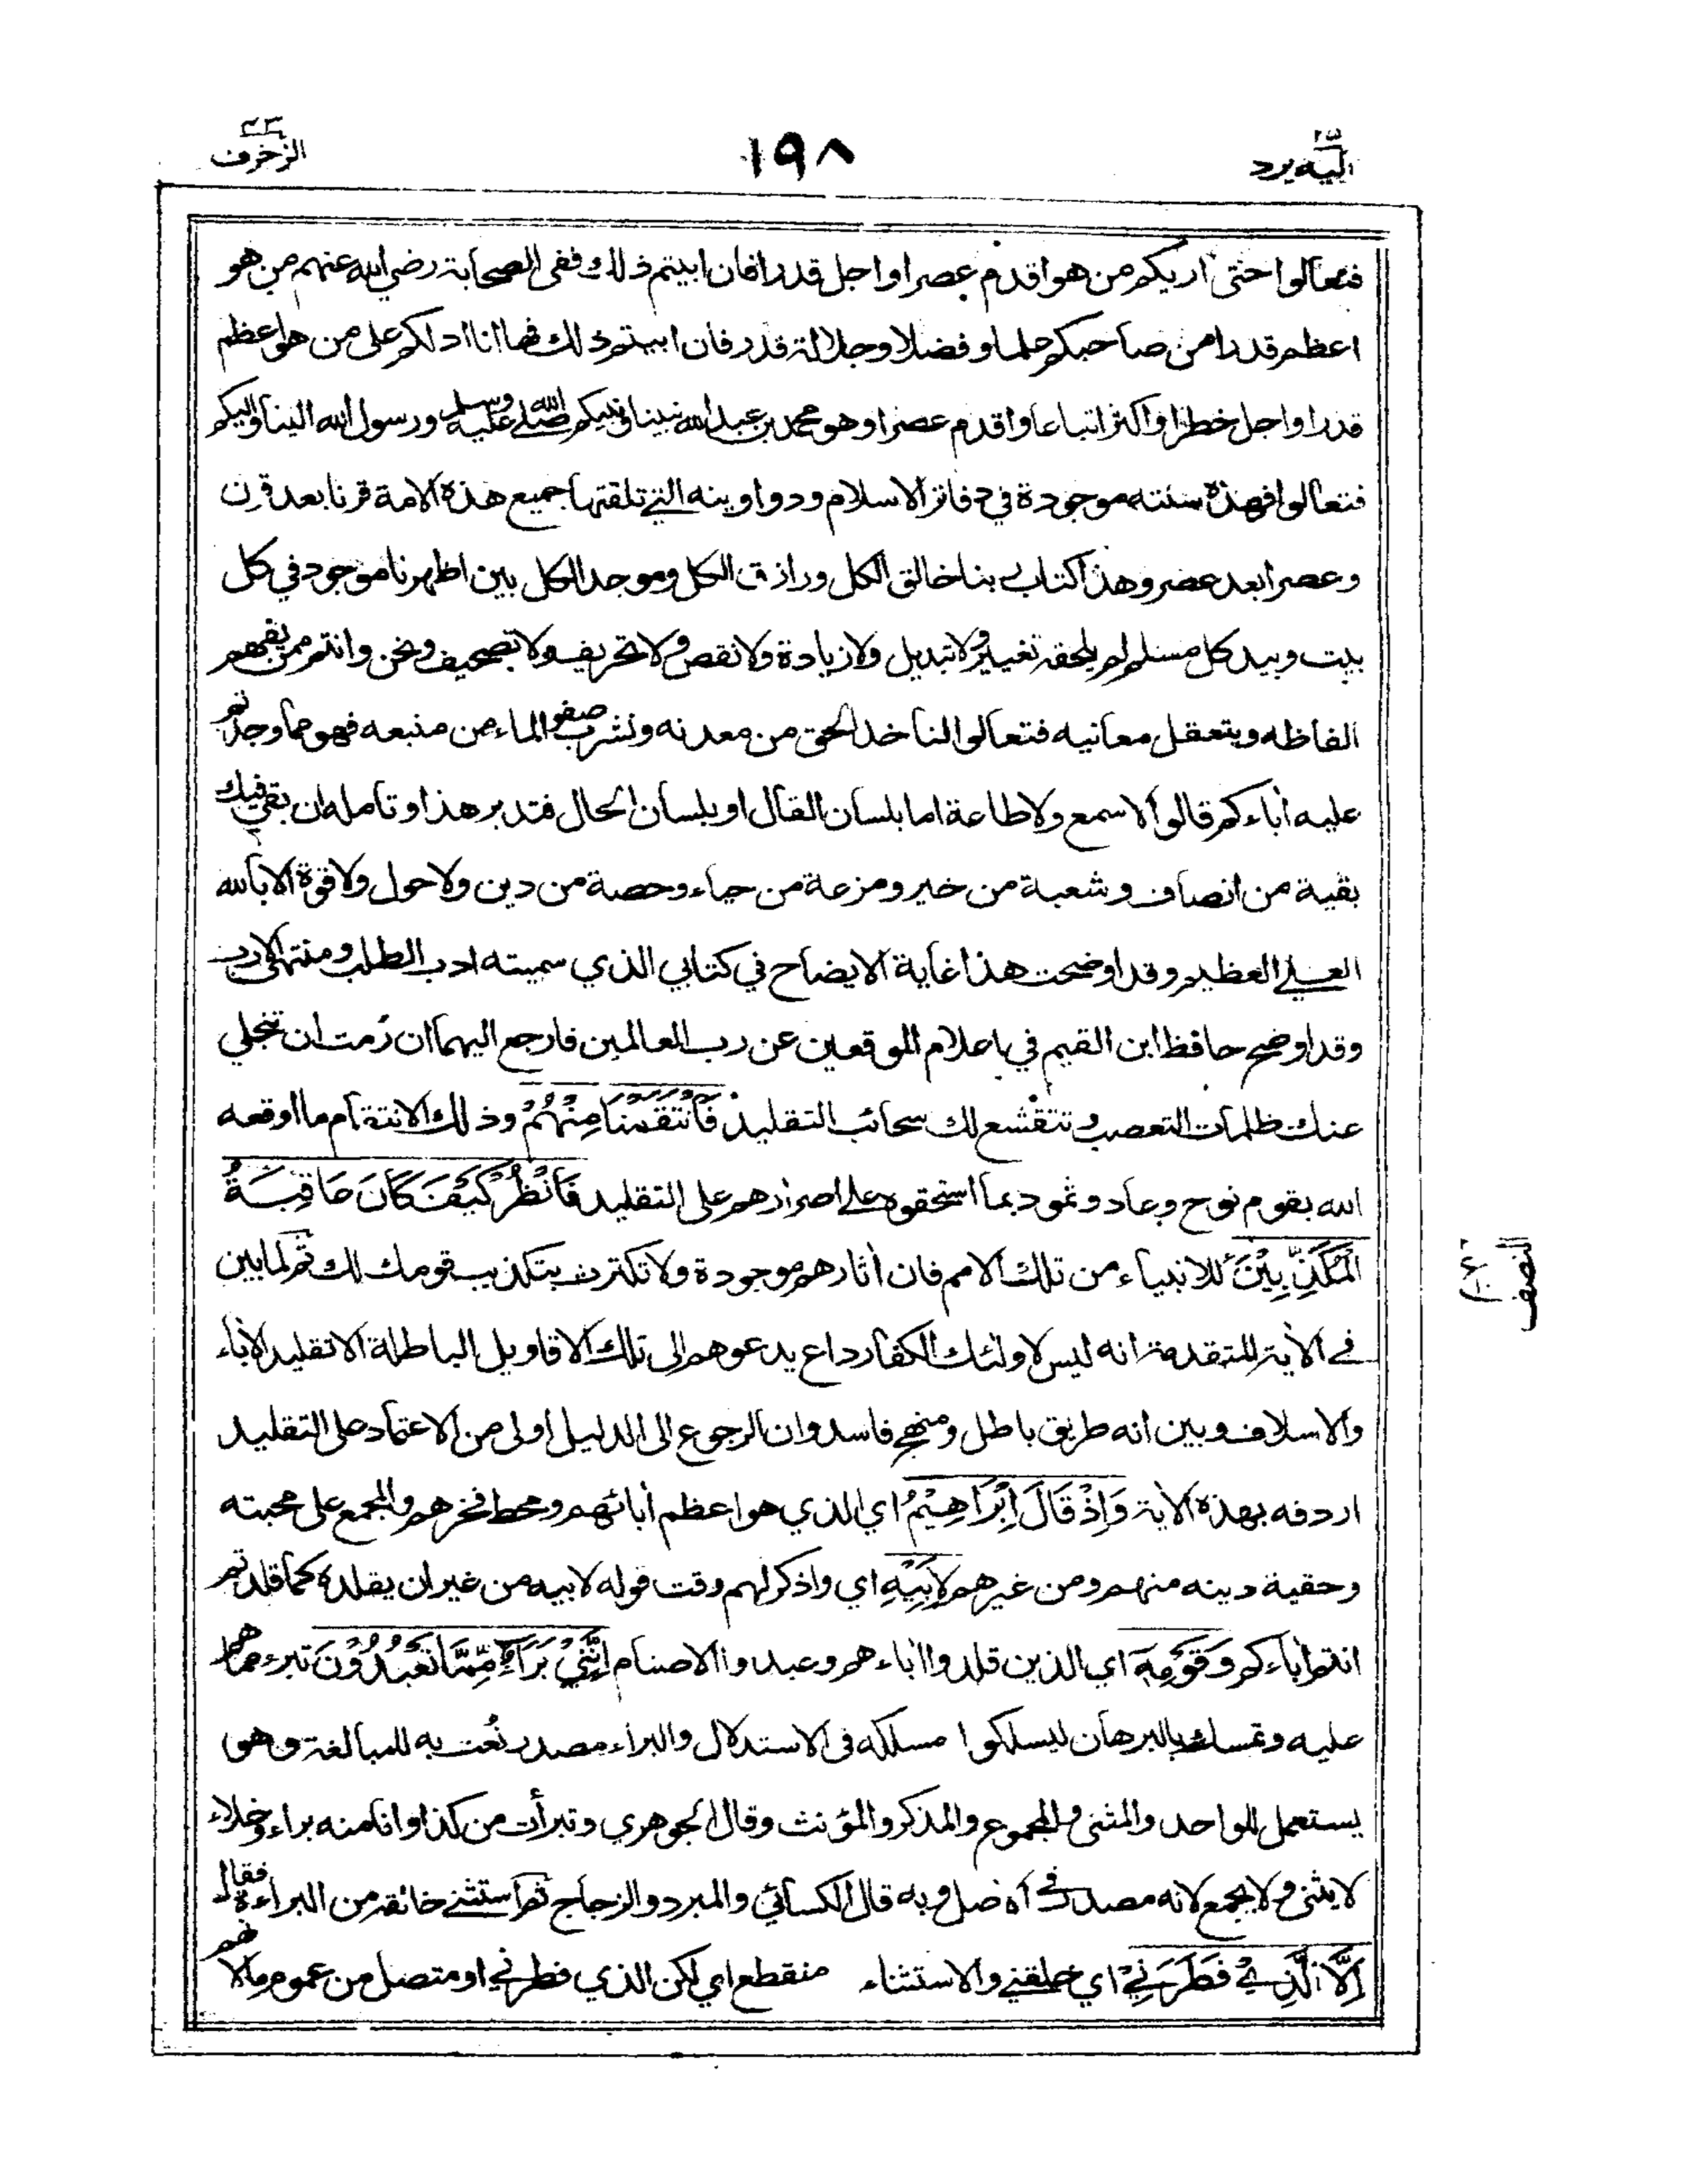 اليه يرد ٢٥
١٩٨
الزخرف ٤٣
فتعالوا حتى اريكم من هو اقدم عصرا واجل قدرا فان ابيتم ذلك ففى الصحابة رضي الله عنهم من هو
اعظم قدرا من صاحبكم علما وفضلا وجلالة قدر فان ابيتم ذلك فها انا ادلكم على من هو اعظم
قدرا واجل خطرا واكثر اتباعا واقدم عصرا وهو محمد بن عبد الله نبينا ونبيكم صلى الله عليه وسلم ورسول الله الينا واليكم
فتعالوا فهذه سنته موجودة في دفاتر الاسلام ودواوينه التي تلقتها جميع هذه الامة قرنا بعد قرن
وعصرا بعد عصر وهذا كتاب ربنا خالق الكل ورازق الكل وموجد الكل بين اظهرنا موجود في كل
بيت وبيد كل مسلم لم يلحقه تغيير ولا تبديل ولا زيادة ولا نقص ولا تحريف ولا تصحيف ونحن وانتم ممن يفهم
الفاظه ويتعقل معانيه فتعالوا لنأخذ الحق من معدنه ونشرب صفو الماء من منبعه فهو مما وجدتم
عليه أباءكم قالوا لا سمع ولا طاعة اما بلسان القال او بلسان الحال فتدبر هذا وتأمله ان بقي فيك
بقية من انصاف وشعبة من خير ومزعة من حياء وحصة من دين ولا حول ولا قوة الا بالله
العلي العظيم وقد اوضحت هذا غاية الايضاح في كتابي الذي سميته ادب الطلب ومنتهى الارب
وقد اوضح حافظ ابن القيم في اعلام الموقعين عن رب العالمين فارجع اليهما ان رُمت ان تنجلي
عنك ظلمات التعصب وتتقشع لك سحائب التقليد فَانْتَقَمْنَا مِنْهُمْ وذلك الانتقام ما اوقعه
الله بقوم نوح وعاد وثمود بما استحقوه على اصرارهم على التقليد فَانْظُرْ كَيْفَ كَانَ عَاقِبَةُ
الْمُكَذِّبِيْنَ للانبياء من تلك الامم فان أثارهم موجودة ولا تكترث بتكذيب قومك لك ثم لما بين
في الأية المتقدمة انه ليس لاولئك الكفار داع يدعوهم الى تلك الاقاويل الباطلة الا تقليد الأباء
والاسلاف وبين انه طريق باطل ومنهج فاسد وان الرجوع الى الدليل اولى من الاعتماد على التقليد
اردفه بهذه الأية وَاِذْ قَالَ اِبْرَاهِيْمُ اي الذي هو اعظم أبائهم ومحط فخرهم والمجمع على محبته
وحقية دينه منهم ومن غيرهم لِاَبِيْهِ اي واذكر لهم وقت قوله لابيه من غير ان يقلده كما قلدتم
انتم أباءكم وَقَوْمِهِ اي الذين قلدوا أباءهم وعبدوا الاصنام اِنَّنِيْ بَرَاءٌ مِّمَّا تَعْبُدُوْنَ تبرء مما هم
عليه وتمسك بالبرهان ليسلكوا مسلكه فى الاستدلال والبراء مصدر نُعت به للمبالغة وهو
يستعمل للواحد والمثنى والمجموع والمذكر والمؤنث وقال الجوهري وتبرأت من كذا وانا منه براء وخلاء
لا يثنى ولا يجمع لانه مصدر في الاصل وبه قال الكسائي والمبرد والزجاج ثم استثنى خالقه من البراءة فقال
اِلَّا الَّذِيْ فَطَرَنِيْ اي خلقني والاستثناء منقطع اي لكن الذي فطرني او متصل من عموم ما لانهم
النصف